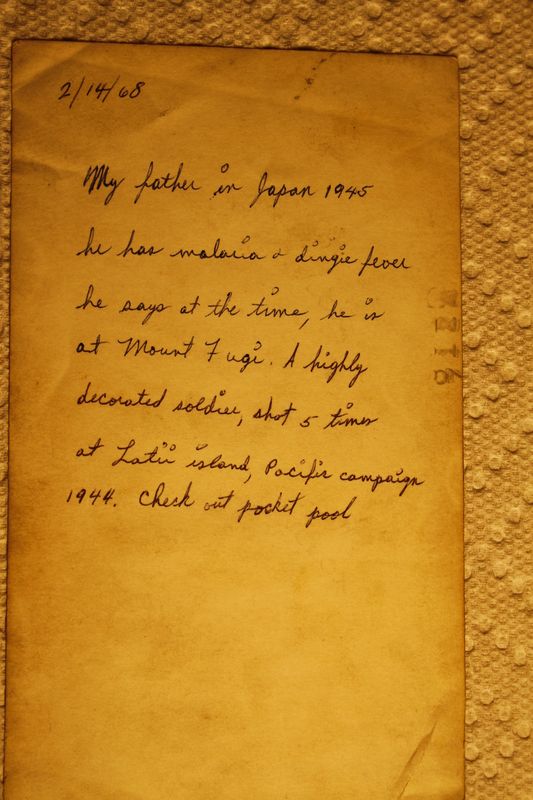 2/14/68
My father in Japan 1945
he has malaria & dingie fever
he says at the time, he is
at Mount Fugi. A highly
decorated soldier, shot 5 times
at Latii island, Pacific campaign
1944. Check out pocket pool